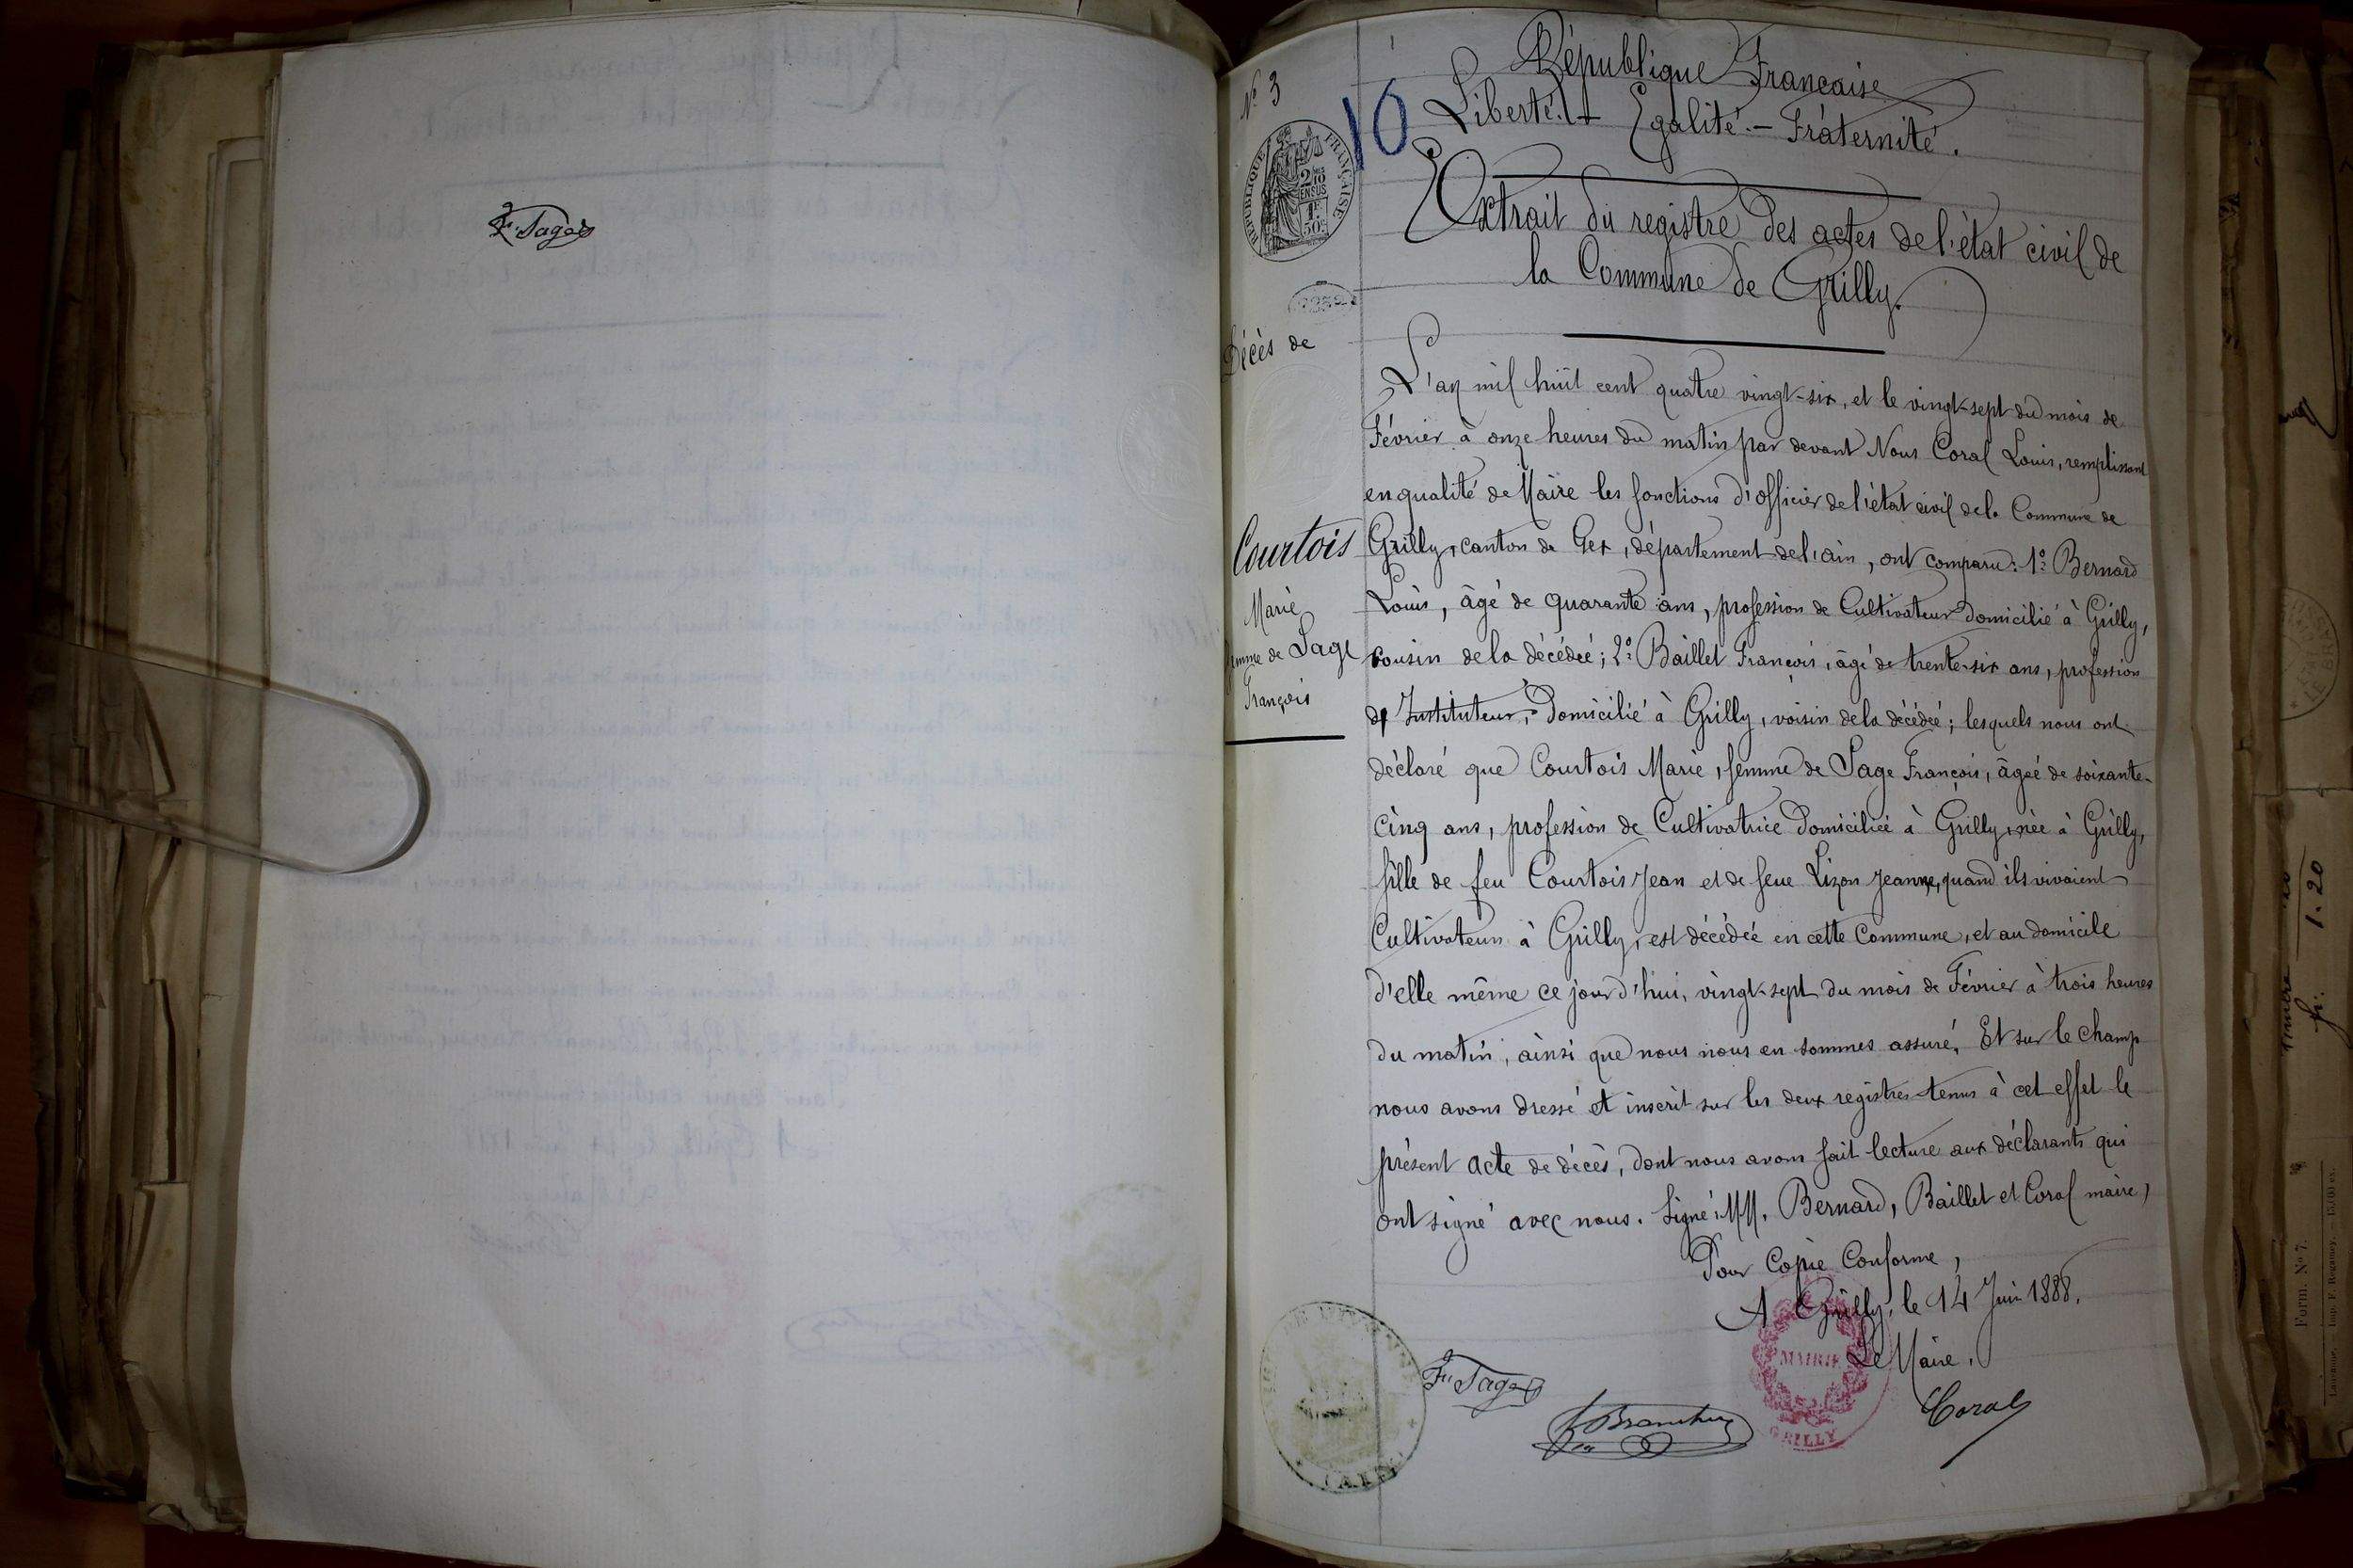 Fs Sage
Nº 3
10
République Française
Liberté. - Egalité. - Fraternité.
REPUBLIQUE FRANÇAISE
2/10
EN SUS
1F
50c
Extrait du registre des actes de l'état civil de
la Commune de Grilly.
Décès de
Courtois
Marie
femme de Sage
François
L'an mil huit cent quatre vingt-six, et le vingt-sept du mois de
Février à onze heures du matin par devant Nous Coral Louis, remplissant
en qualité de Maire les fonctions d'officier de l'état civil de la Commune de
Grilly, canton de Gex, département de l'ain, ont comparu: 1º: Bernard
Louis, âgé de quarante ans, profession de Cultivateur domicilié à Grilly,
cousin de la décédée; 2º: Baillet François, âgé de trente-six ans, profession
de Instituteur, domicilié à Grilly, voisin de la décédée; lesquels nous ont
déclaré que Courtois Marie, femme de Sage François, âgée de soixante-
cinq ans, profession de Cultivatrice domiciliée à Grilly, née à Grilly,
fille de feu Courtois Jean et de feue Lizon Jeanne, quand ils vivaient
Cultivateurs à Grilly, est décédée en cette Commune, et au domicile
d'elle même ce jourd'hui, vingt-sept du mois de Février à trois heures
du matin, ainsi que nous nous en sommes assuré. Et sur le champ
nous avons dressé et inscrit sur les deux registres tenus à cet effet le
présent acte de décès, dont nous avons fait lecture aux déclarants qui
ont signé avec nous. Signé: MM. Bernard, Baillet et Coral maire,
Pour Copie Conforme,
A Grilly, le 14 Juin 1888.
Le Maire,
MAIRIE
GRILLY
Coral
Fs Sage
(AIN)
1.20
fr.
Form. Nº 7.